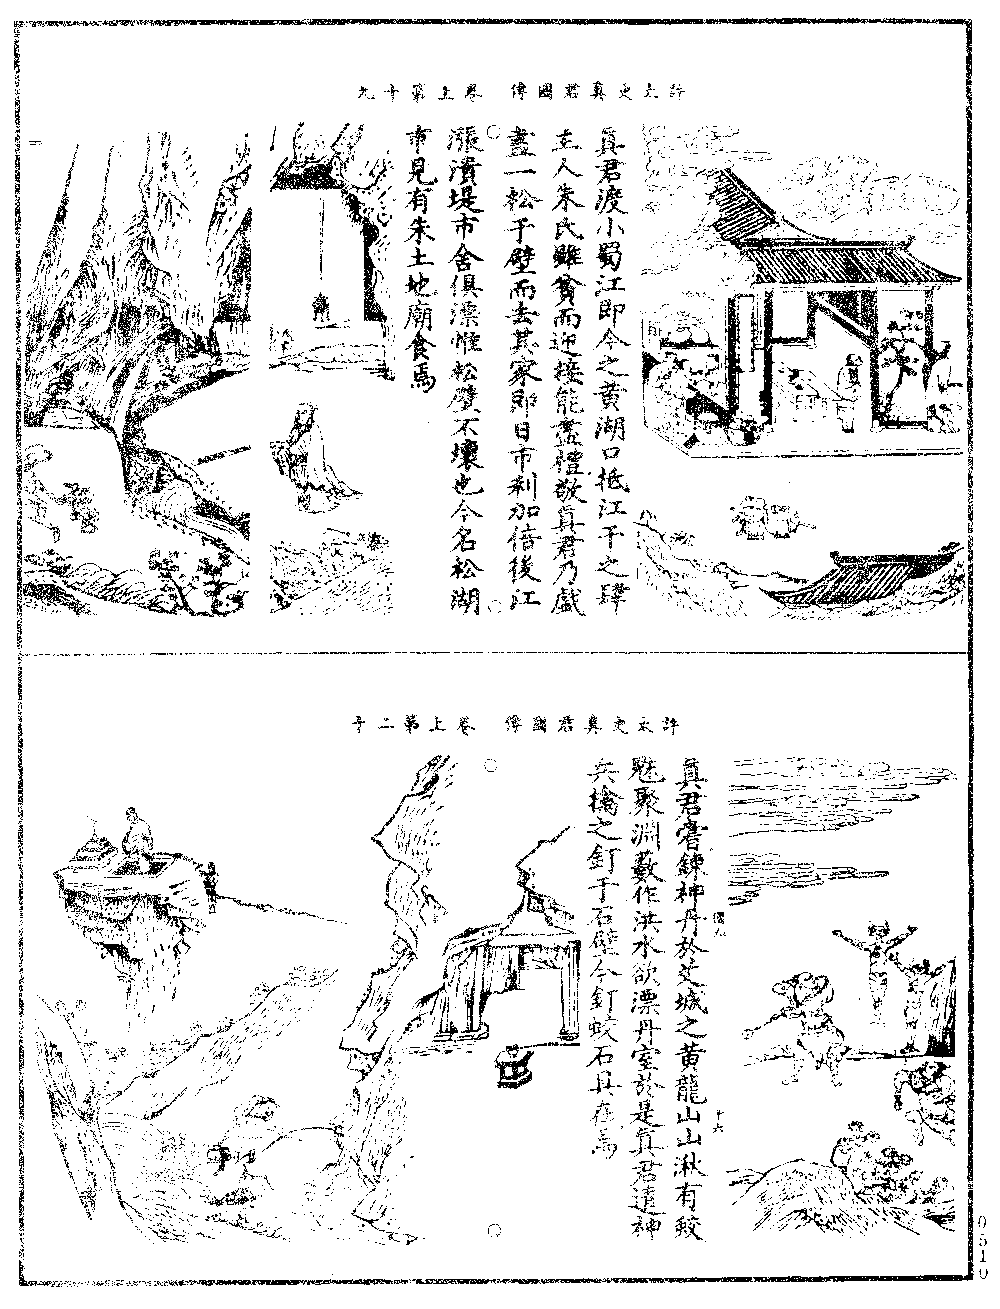 許太史真君圖傳　卷上第十九
真君渡小蜀江即今之黄湖口抵江干之肆
主人朱氏雖貧而迎接能盡禮敬真君乃戲
畫一松于壁而去其家即日市利加倍後江
漲潰堤市舍俱漂惟松壁不壞也今名松湖
市見有朱土地廟食焉
許太史真君圖傳　卷上第二十
真君嘗鍊神丹於艾城之黄龍山山湫有蛟
魅聚淵藪作洪水欲漂丹室於是真君遣神
兵擒之釘于石壁今釘蛟石具在焉
十六
0510